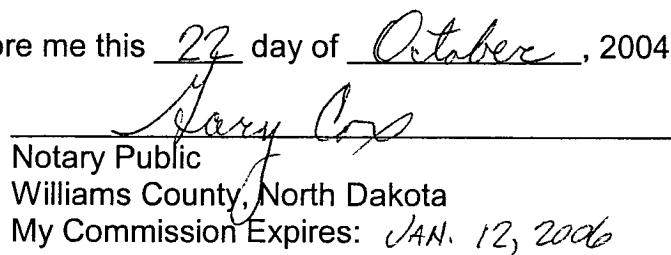 ore me this 22 day of October, 2004
Gary Cox
Notary Public
Williams County, North Dakota
My Commission Expires: JAN. 12, 2006